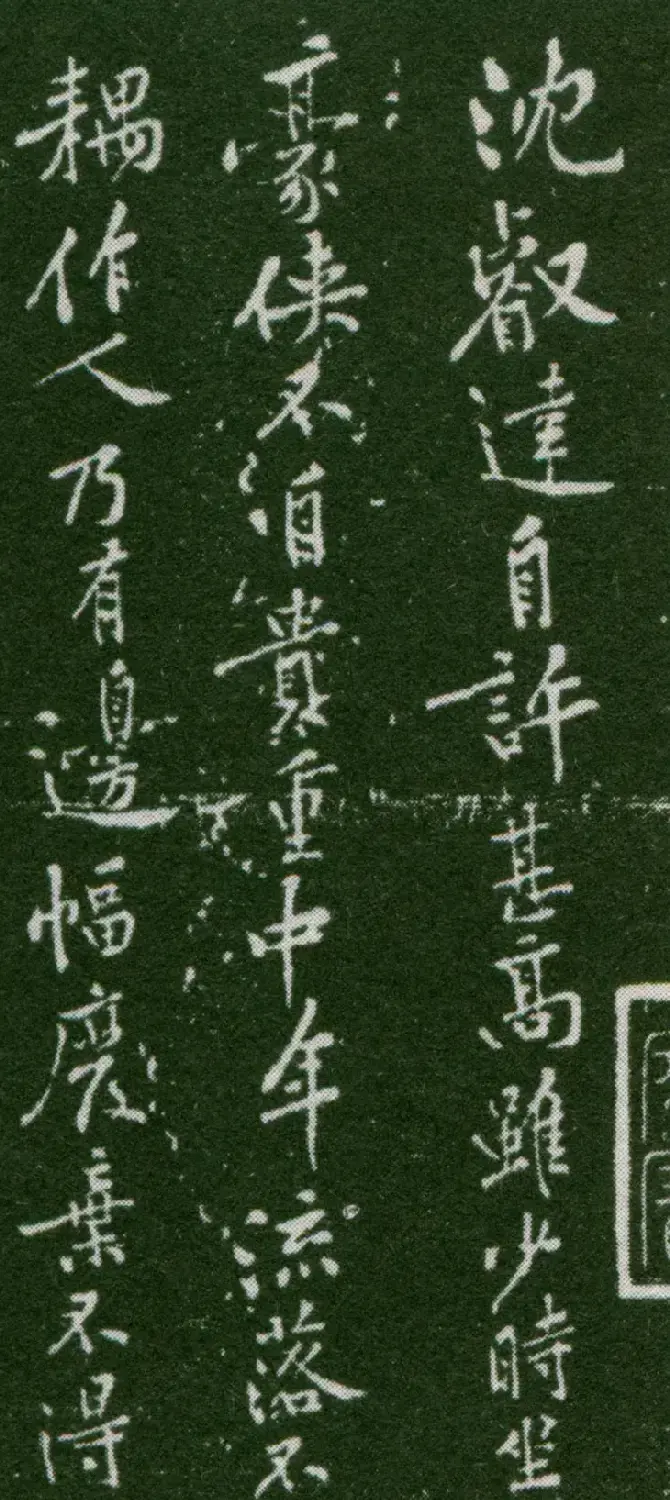 沈叡達自許甚高雖少時坐
豪俠不自貴重中年流落不
耦作人乃有邊幅廢棄不得